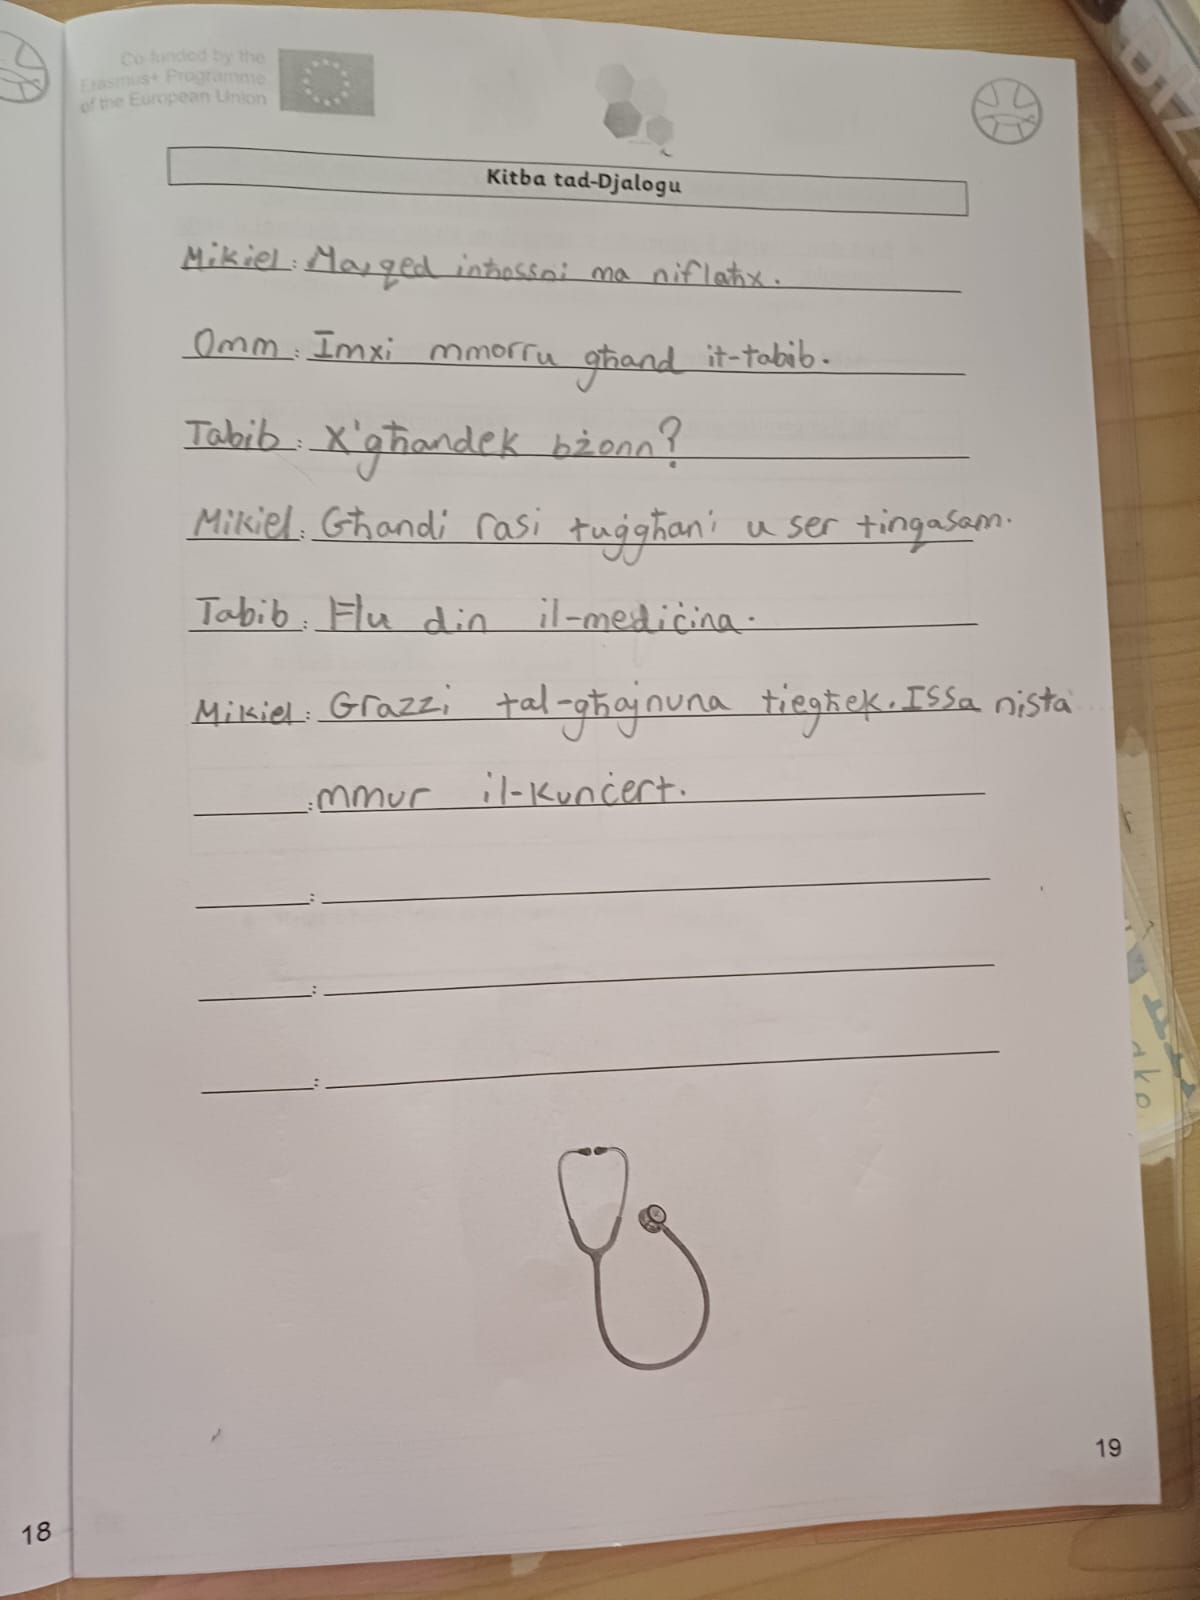 Co-funded by the
Erasmus+ Programme
of the European Union
Kitba tad-Djalogu
Mikiel: Ma, qed inħossni ma niflaħx.
Omm: Imxi mmorru għand it-tabib.
Tabib: X'għandek bżonn?
Mikiel: Għandi rasi tuġgħani u ser tinqasam.
Tabib: Ħu din il-mediċina.
Mikiel: Grazzi tal-għajnuna tiegħek. Issa nista
: mmur il-kunċert.
:
:
:
19
18